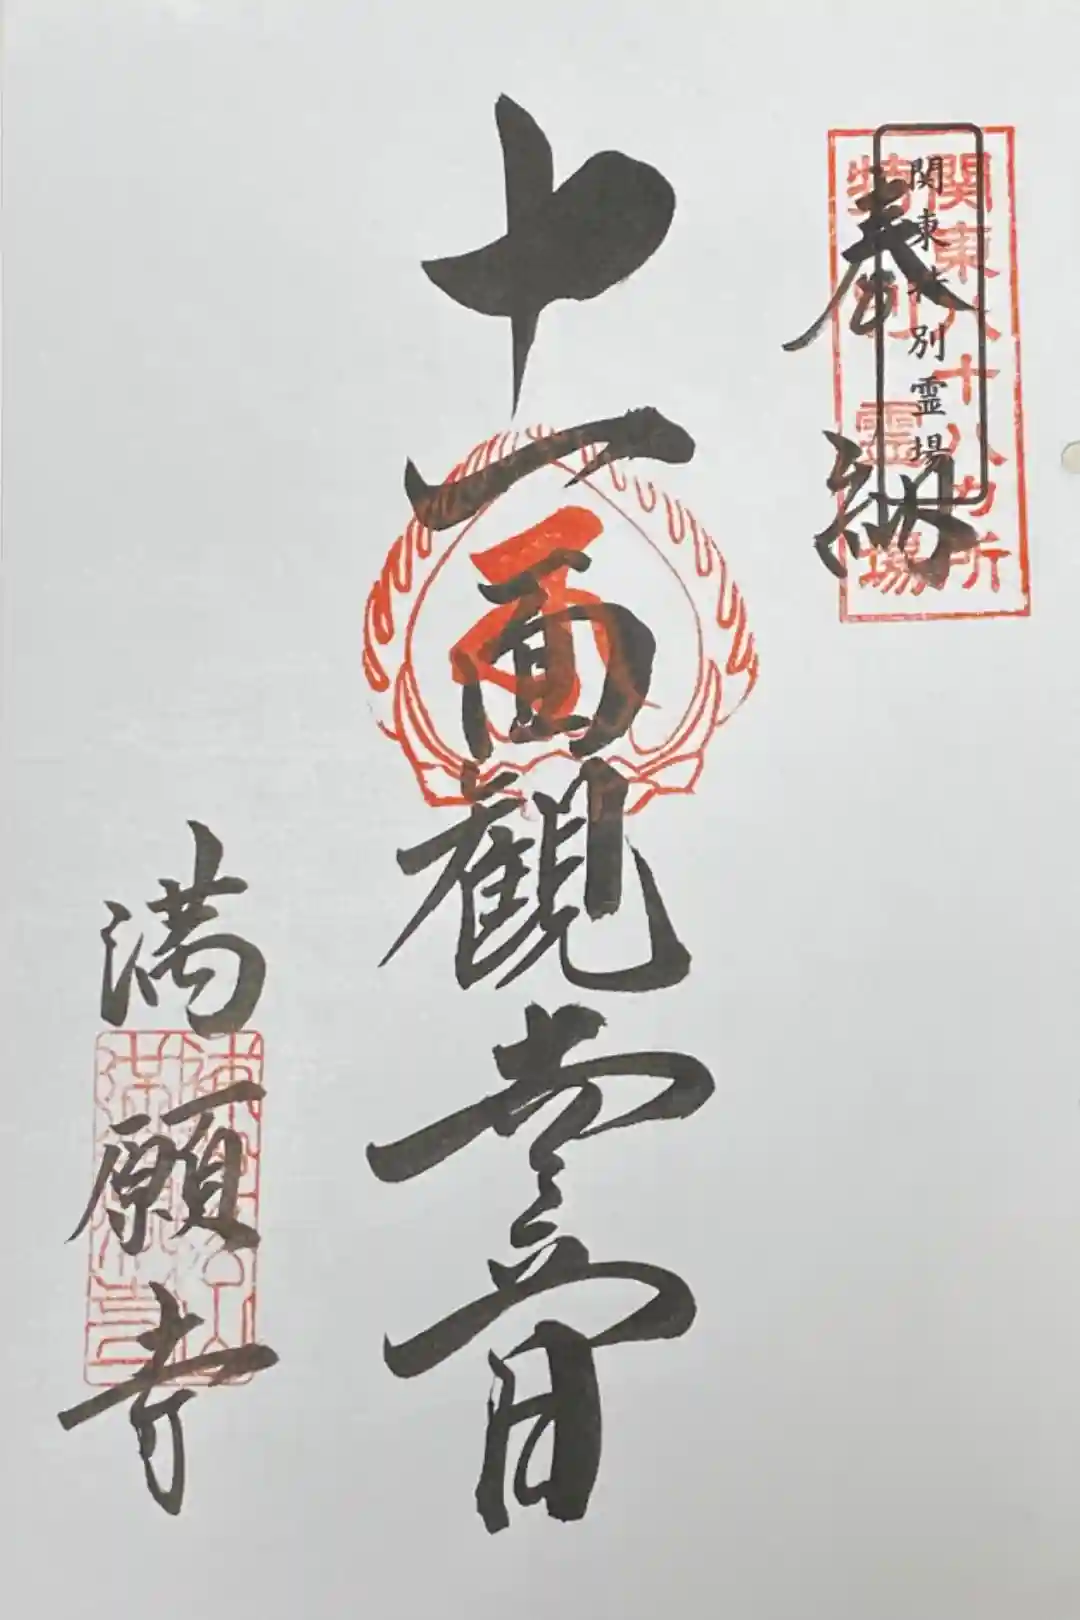 関東八十八カ所
特別霊場
関東特別霊場
奉納
十一面観世音
満願寺